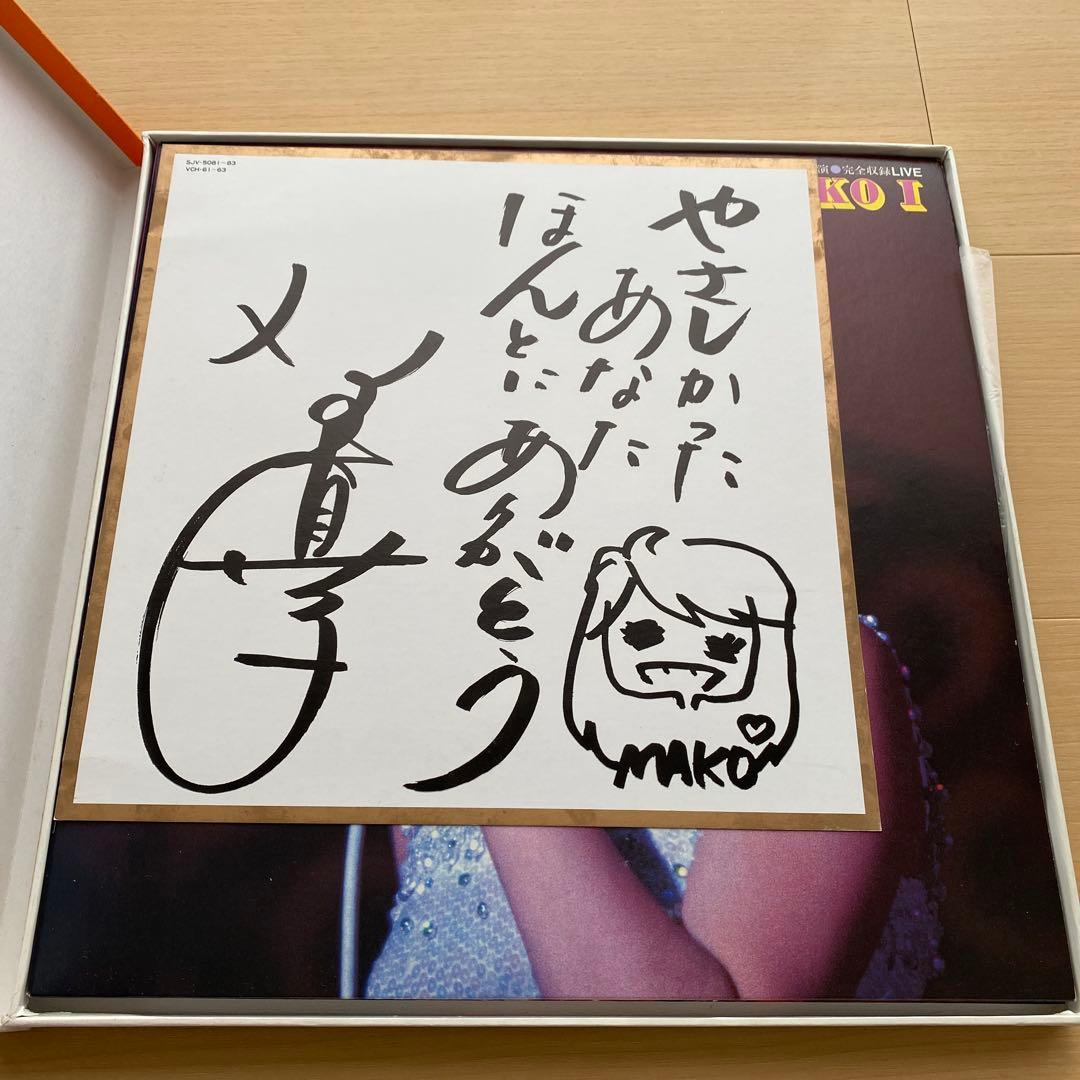 SJV-5061~63
VCH-61~63
演●完全収録LIVE
KO I
やさしかった
あなた
ほんとに ありがとう
MAKO